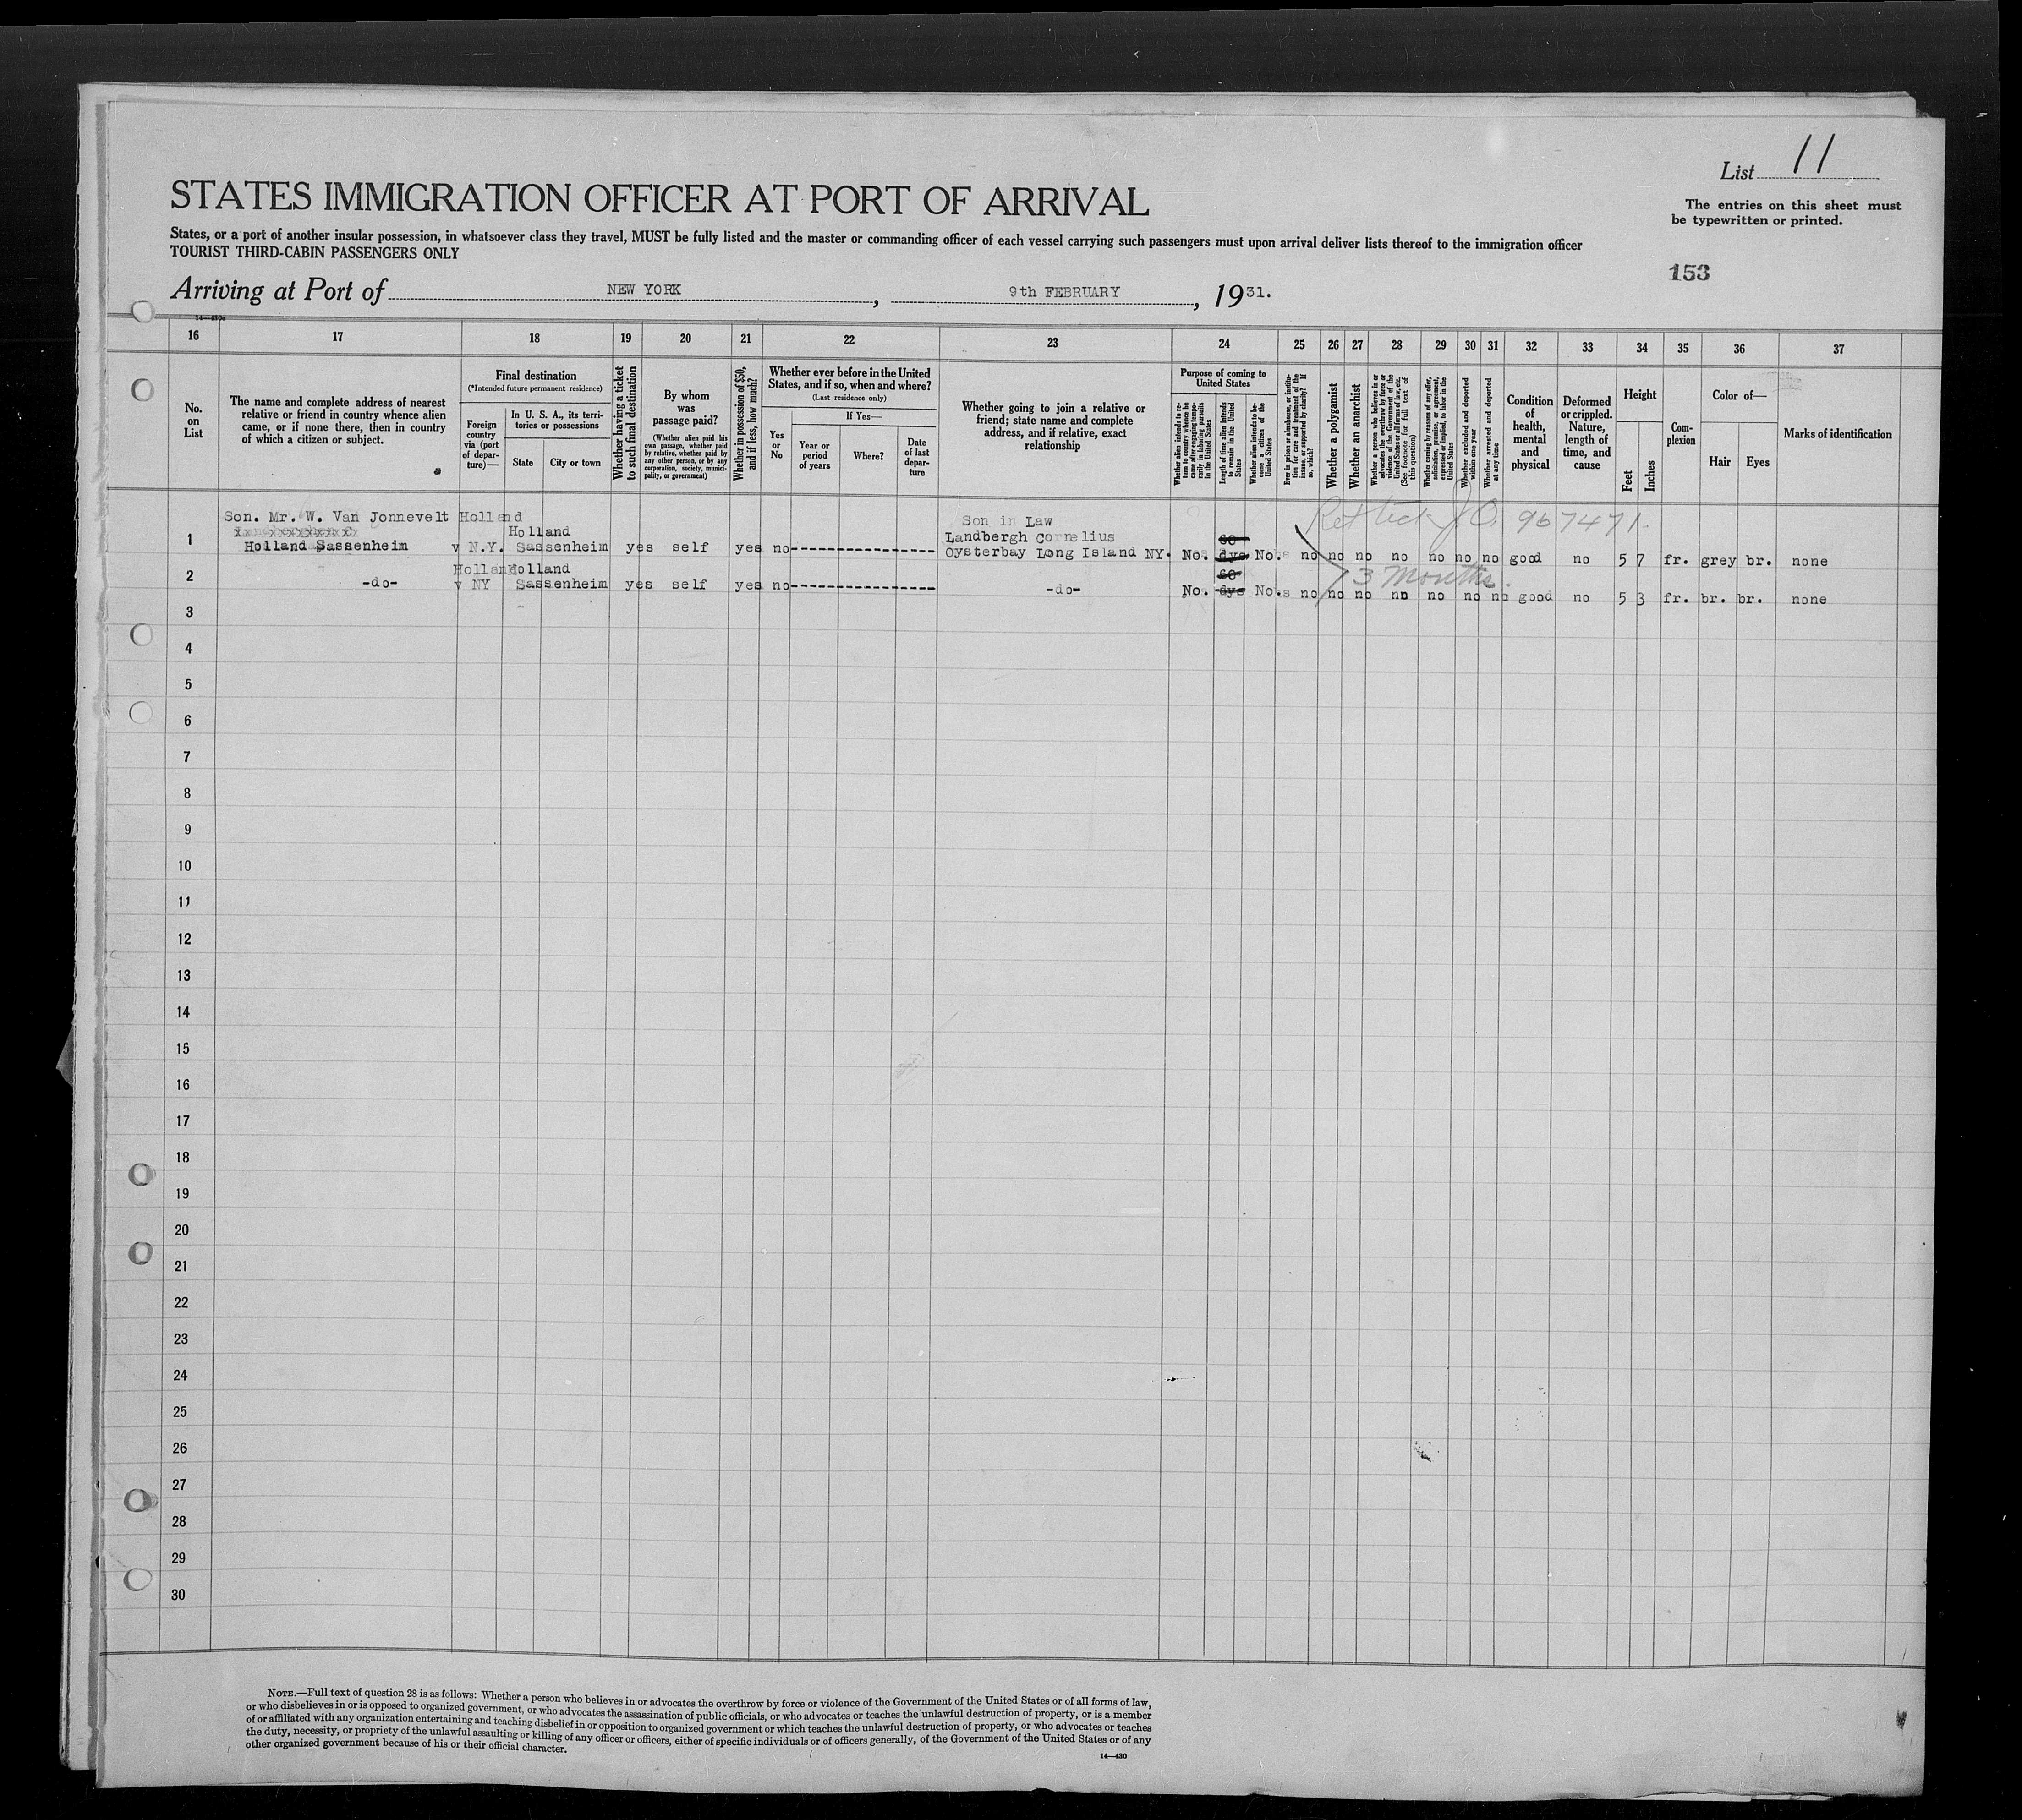 List 11
STATES IMMIGRATION OFFICER AT PORT OF ARRIVAL
The entries on this sheet must
be typewritten or printed.
States, or a port of another insular possession, in whatsoever class they travel, MUST be fully listed and the master or commanding officer of each vessel carrying such passengers must upon arrival deliver lists thereof to the immigration officer
TOURIST THIRD-CABIN PASSENGERS ONLY
153
Arriving at Port of NEW YORK, 9th FEBRUARY, 1931.
16 17 18 19 20 21 22 23 24 25 26 27 28 29 30 31 32 33 34 35 36 37
No.
on
List
The name and complete address of nearest
relative or friend in country whence alien
came, or if none there, then in country
of which a citizen or subject.
Final destination
(*Intended future permanent residence)
Foreign
country
via (port
of depar-
ture)—
In U. S. A., its terri-
tories or possessions
State
City or town
Whether having a ticket
to such final destination
By whom
was
passage paid?
(Whether alien paid his
own passage, whether paid
by relative, whether paid by
any other person, or by any
corporation, society, munici-
pality, or government)
Whether in possession of $50,
and if less, how much?
Whether ever before in the United
States, and if so, when and where?
(Last residence only)
Yes
or
No
If Yes—
Year or
period
of years
Where?
Date
of last
depar-
ture
Whether going to join a relative or
friend; state name and complete
address, and if relative, exact
relationship
Purpose of coming to
United States
Whether alien intends to re-
turn to country whence he
came after engaging tempo-
rarily in laboring pursuits
in the United States
Length of time alien intends
to remain in the United
States
Whether alien intends to be-
come a citizen of the
United States
Ever in prison or almshouse, or institu-
tion for care and treatment of the
insane, or supported by charity? If
so, which?
Whether a polygamist
Whether an anarchist
Whether a person who believes in or
advocates the overthrow by force or
violence of the Government of the
United States or all forms of law, etc.
(See footnote for full text of
this question)
Whether coming by reasons of any offer,
solicitation, promise, or agreement,
expressed or implied, to labor in the
United States
Whether excluded and deported
within one year
Whether arrested and deported
at any time
Condition
of
health,
mental
and
physical
Deformed
or crippled.
Nature,
length of
time, and
cause
Height
Feet
Inches
Com-
plexion
Color of—
Hair
Eyes
Marks of identification
Son. Mr. W. Van Jonnevelt Holland Son in Law 967471
Holland Landbergh Cornelius 60
1 Holland Sassenheim v N.Y. Sassenheim yes self yes no Oysterbay Long Island NY. No. dys No. no no no no no no no good no 5 7 fr. grey br. none
Holland Holland 60 3 Months.
2 -do- v NY Sassenheim yes self yes no -do- No. dys No. no no no no no no no good no 5 3 fr. br. br. none
3
4
5
6
7
8
9
10
11
12
13
14
15
16
17
18
19
20
21
22
23
24
25
26
27
28
29
30
NOTE.—Full text of question 28 is as follows: Whether a person who believes in or advocates the overthrow by force or violence of the Government of the United States or of all forms of law,
or who disbelieves in or is opposed to organized government, or who advocates the assassination of public officials, or who advocates or teaches the unlawful destruction of property, or is a member
of or affiliated with any organization entertaining and teaching disbelief in or opposition to organized government or which teaches the unlawful destruction of property, or who advocates or teaches
the duty, necessity, or propriety of the unlawful assaulting or killing of any officer or officers, either of specific individuals or of officers generally, of the Government of the United States or of any
other organized government because of his or their official character.
14—430